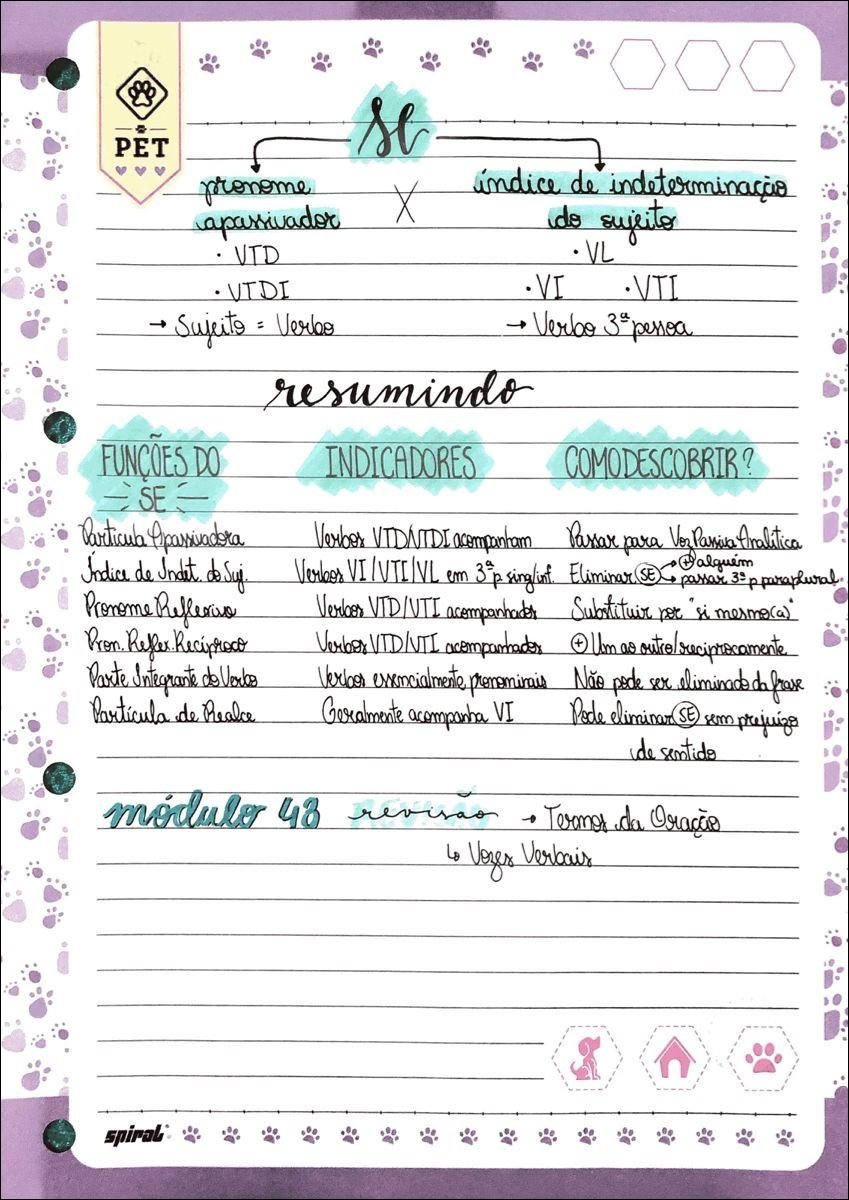 PET
Se
pronome
apassivador
X
índice de indeterminação
do sujeito
· VTD
· VTDI
→ Sujeito = Verbo
· VL
· VI · VTI
→ Verbo 3ª pessoa
resumindo
FUNÇÕES DO SE INDICADORES COMO DESCOBRIR?
Partícula Apassivadora Verbos VTD/VTDI acompanham Passar para Voz Passiva Analítica
Índice de Indet. do Suj. Verbos VI/VTI/VL em 3ª p sing/inf. Eliminar SE → + alguém
→ passar 3ª p para plural
Pronome Reflexivo Verbos VTD/VTI acompanhados Substituir por "si mesmo(a)"
Pron. Reflex. Recíproco Verbos VTD/VTI acompanhados + Um ao outro/reciprocamente
Parte Integrante do Verbo Verbos essencialmente pronominais Não pode ser eliminado da frase
Partícula de Realce Geralmente acompanha VI Pode eliminar SE sem prejuízo
de sentido
módulo 48 revisão → Termos da Oração
↳ Vozes Verbais
spiral